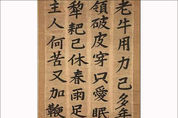 老牛用力已多年
領破皮穿只愛眠
犂耙已休春雨足
主人何苦又加鞭